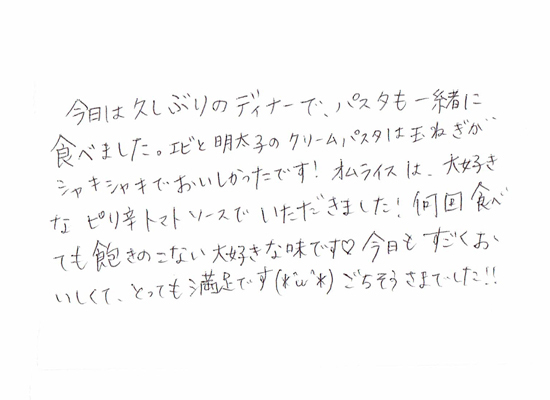 今日は久しぶりのディナーで、パスタも一緒に
食べました。エビと明太子のクリームパスタは玉ねぎが
シャキシャキでおいしかったです! オムライスは、大好き
なピリ辛トマトソースでいただきました! 何回食べ
ても飽きのこない大好きな味です♡今日もすごくお
いしくて、とっても満足です(*^ω^*) ごちそうさまでした!!